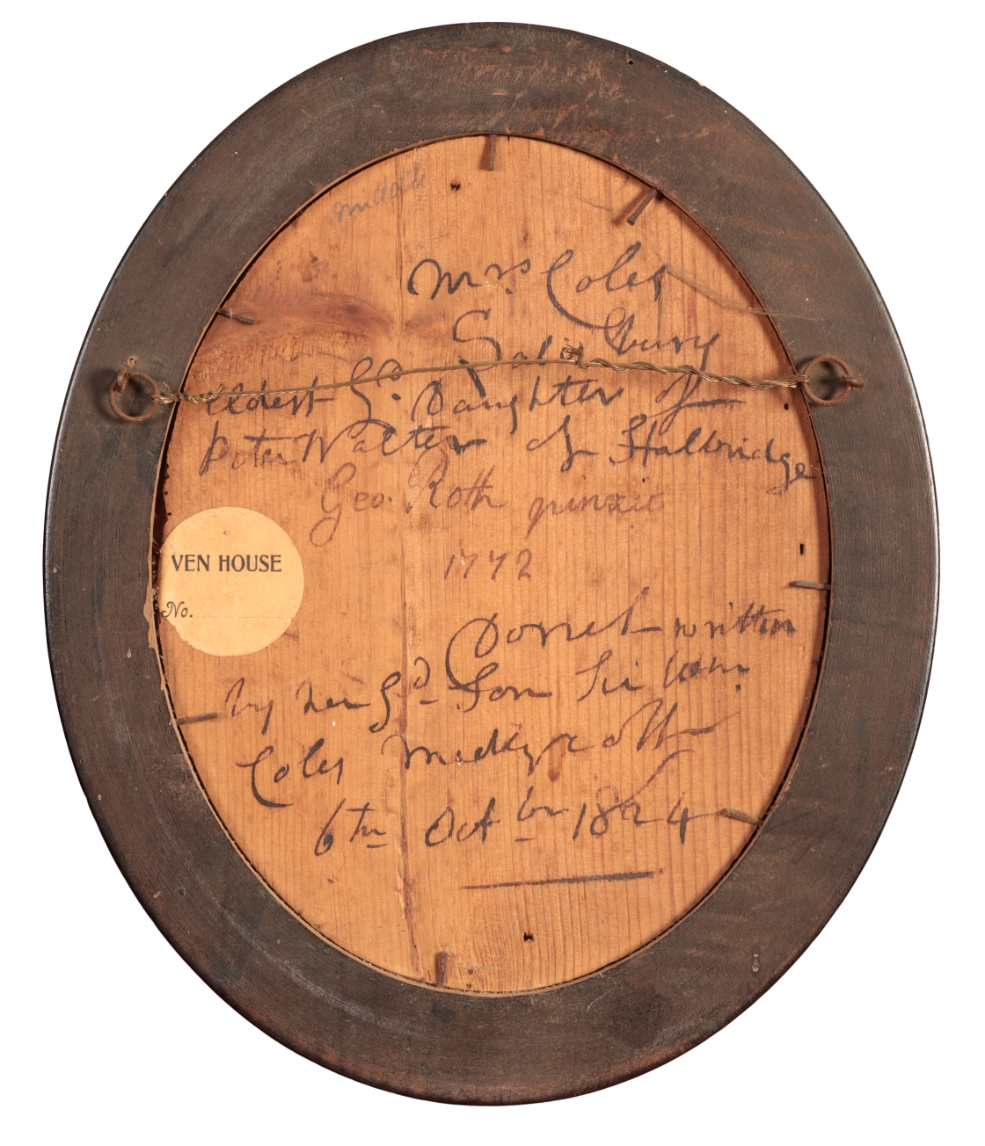 middle
Mrs. Coles
Salisbury
eldest Gd. Daughter of
Peter Walter of Stalbridge
Geo. Roth pinxit
1772
VEN HOUSE
No.
Dorset written
by her Gd. Son Sir Wm.
Coles Medlycott
6th Octbr 1824